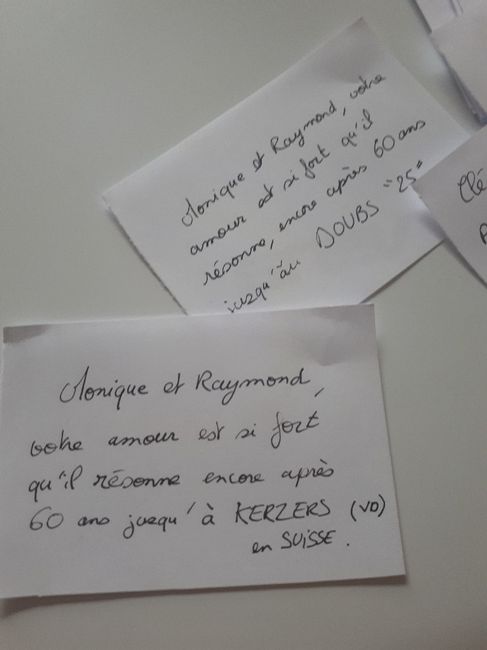 Monique et Raymond, votre
amour est si fort qu'il
résonne, encore après 60 ans
jusqu'au DOUBS "25"
Clé
Monique et Raymond,
votre amour est si fort,
qu'il résonne encore après
60 ans jusqu'à KERZERS (VD)
en SUISSE.